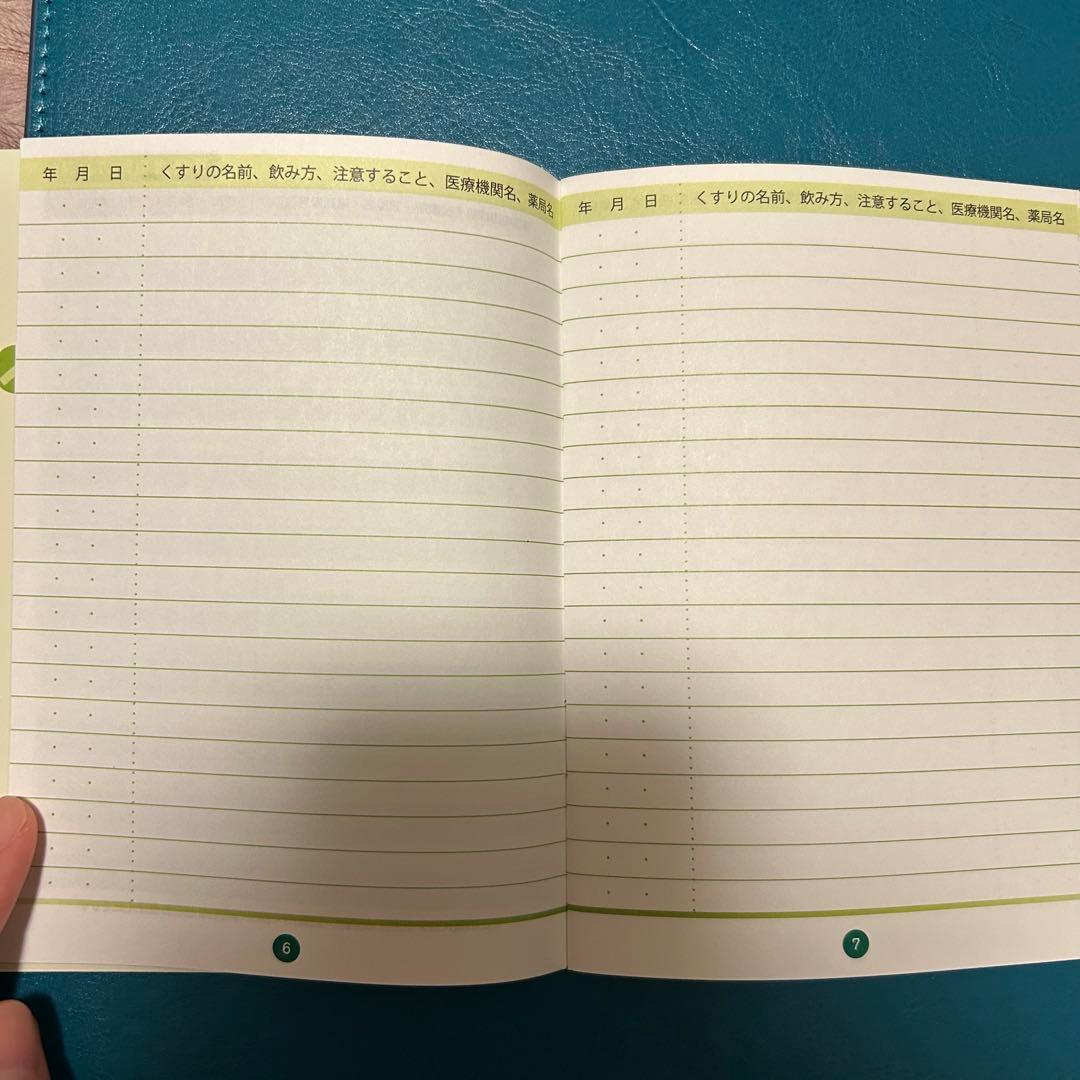 年 月 日 くすりの名前、飲み方、注意すること、医療機関名、薬局名
6
年 月 日 くすりの名前、飲み方、注意すること、医療機関名、薬局名
7